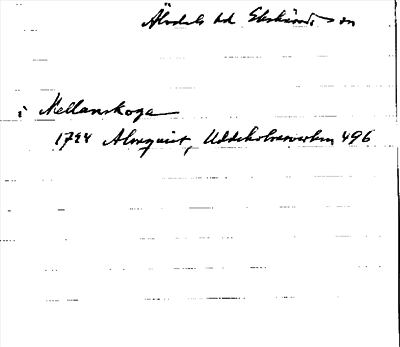 Älvdals hd Ekshärads sn
i Mellanskoga
1744 Almquist, Uddeholmsverken 496